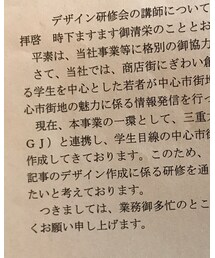 デザイン研修会の講師につい
拝啓　時下ますます御清栄のこととお
平素は、当社事業等に格別の御協力
さて、当社では、商店街にぎわい創
る学生を中心とした若者が中心市街
心市街地の魅力に係る情報発信を行っ
現在、本事業の一環として、三重大
ＧＪ）と連携し、学生目線の中心市
作成してきております。このため、
記事のデザイン作成に係る研修を通
たいと考えております。
つきましては、業務御多忙のところ
くお願い申し上げます。